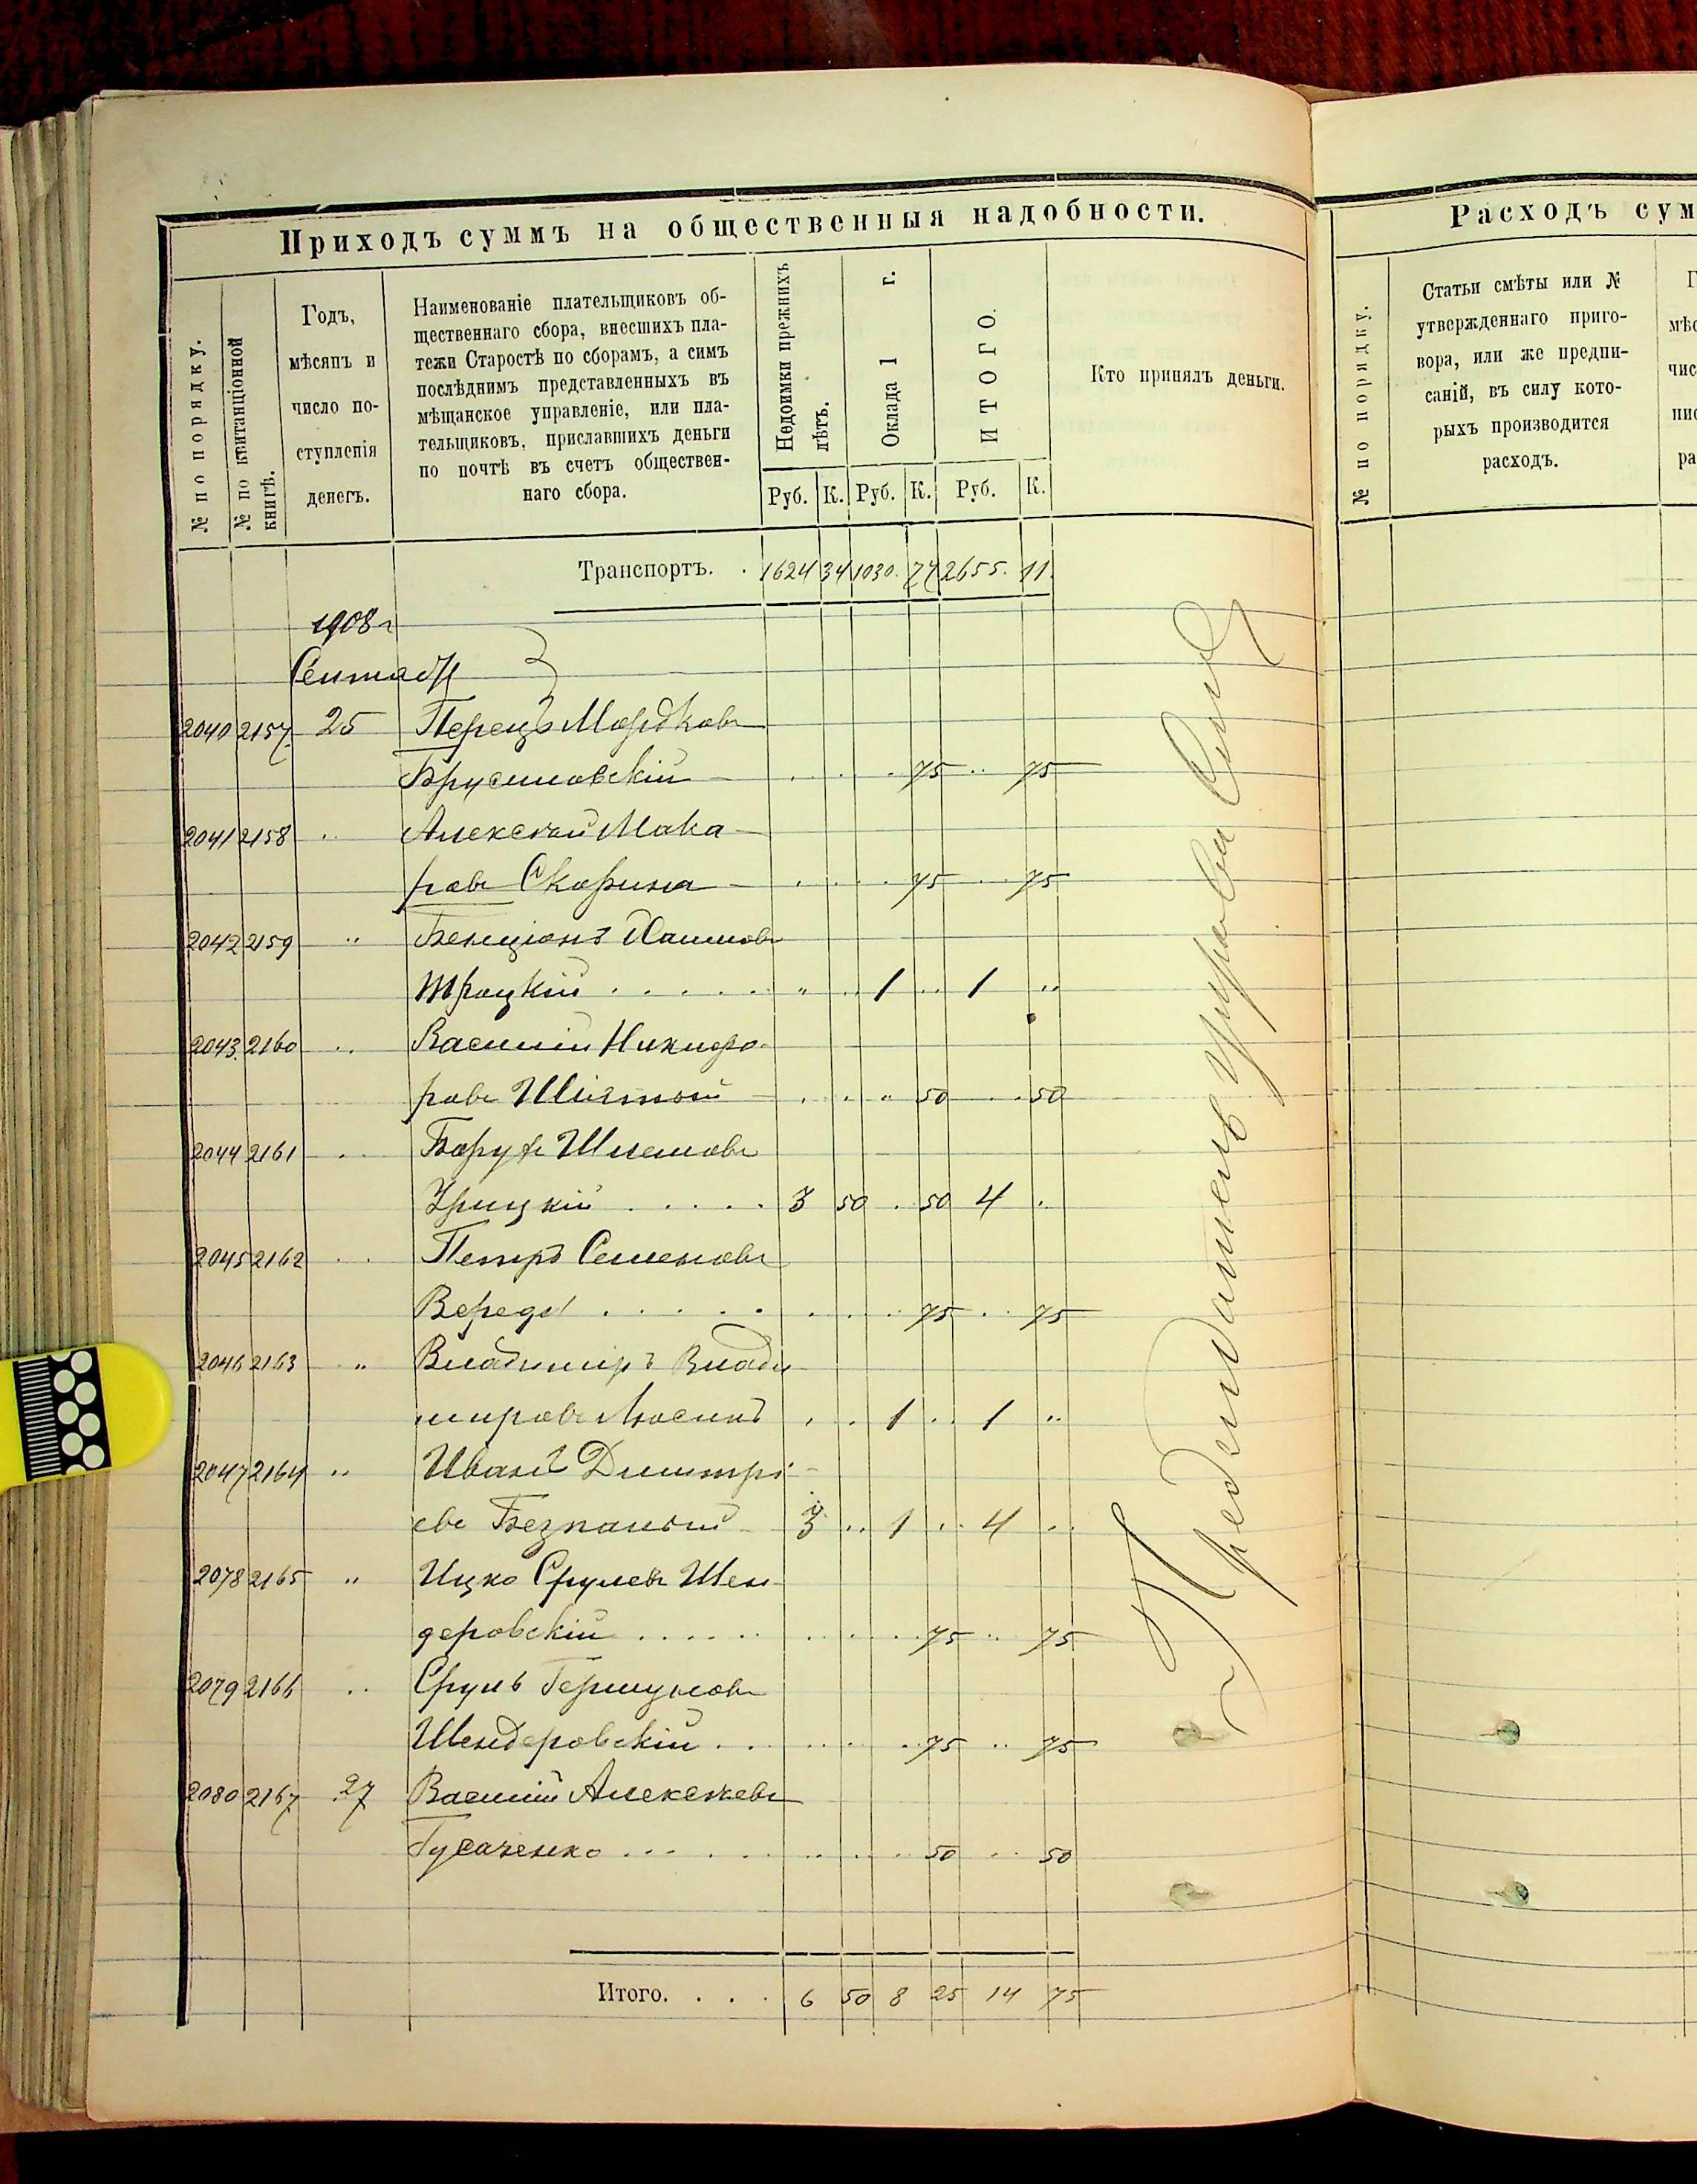 Приходъ суммъ на общественныя надобности.
№ по порядку.
№ по квитанціонной книгѣ.
Годъ,
мѣсяцъ и
число по-
ступленія
денегъ.
Наименованіе плательщиковъ об-
щественнаго сбора, внесшихъ пла-
тежи Старостѣ по сборамъ, а симъ
послѣднимъ представленныхъ въ
мѣщанское управленіе, или пла-
тельщиковъ, приславшихъ деньги
по почтѣ въ счетъ обществен-
наго сбора.
Недоимки прежнихъ лѣтъ.
Оклада 1 г.
ИТОГО.
Кто принялъ деньги.
Руб. К. Руб. К. Руб. К.
Транспортъ. . 1624 34 1030. 77 2655. 11.
1908 г
2040 2157 25 Перецъ Мордков
Брусиловскій — 75 75
2041 2158 " Алексѣй Мака-
ров Скорина — 75 75
2042 2159 " Бенціонъ Хаимов
Троцкій . . . . . 1 " 1 "
2043. 2160 " Василій Никифо-
ров 50 50
2044 2161 " Борух Шлемов
Урицкій . . . . . 3 50 . 50 4 .
2045 2162 " Петръ Семенов
Вереды . . . . . 75 75
2046 2163 " Владиміръ Влади
миров 1 " 1 "
2047 2164 " Иванъ Димитрі-
ев Безпалый 3 " 1 " 4 "
2078 2165 " Ицко Срулев Шен-
деровскій . . . . . 75 75
2079 2166 " Сруль Гершунов
Шендеровскій . . 75 75
2080 2167 27 Василій Алексѣев
Гусаченко . . . 50 50
Итого. . . . 6 50 8 25 14 75
Расходъ сум
№ по порядку.
Статьи смѣты или №
утвержденнаго приго-
вора, или же предпи-
саній, въ силу кото-
рыхъ производится
расходъ.
Г
мѣс
чис
пис
ра